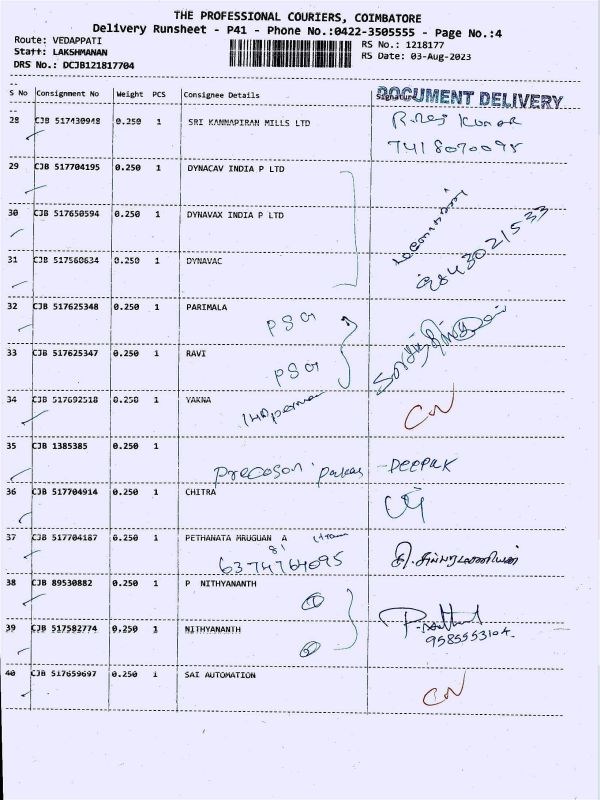 THE PROFESSIONAL COURIERS, COIMBATORE
Delivery Runsheet - P41 - Phone No.:0422-3505555 - Page No.:4
Route: VEDAPPATI
RS No.: 1218177
Staff: LAKSHMANAN
RS Date: 03-Aug-2023
DRS No.: DCJB121817704
S No Consignment No Weight PCS Consignee Details Signature
DOCUMENT DELIVERY
28 CJB 517430948 0.250 1 SRI KANNAPIRAN MILLS LTD R. Raj Kumar
7418070095
29 CJB 517704195 0.250 1 DYNACAV INDIA P LTD
30 CJB 517650594 0.250 1 DYNAVAX INDIA P LTD
31 CJB 517560634 0.250 1 DYNAVAC
9843021533
32 CJB 517625348 0.250 1 PARIMALA
PSG
33 CJB 517625347 0.250 1 RAVI
PSG
34 CJB 517692518 0.250 1 YAKNA
CN
35 CJB 1385385 0.250 1
DEEPAK
36 CJB 517704914 0.250 1 CHITRA
37 CJB 517704187 0.250 1 PETHANATA MRUGUAN A
81
6374764095
38 CJB 89530882 0.250 1 P NITHYANANTH
1
39 CJB 517582774 0.250 1 NITHYANANTH
9585553104.
2
40 CJB 517659697 0.250 1 SAI AUTOMATION
CN